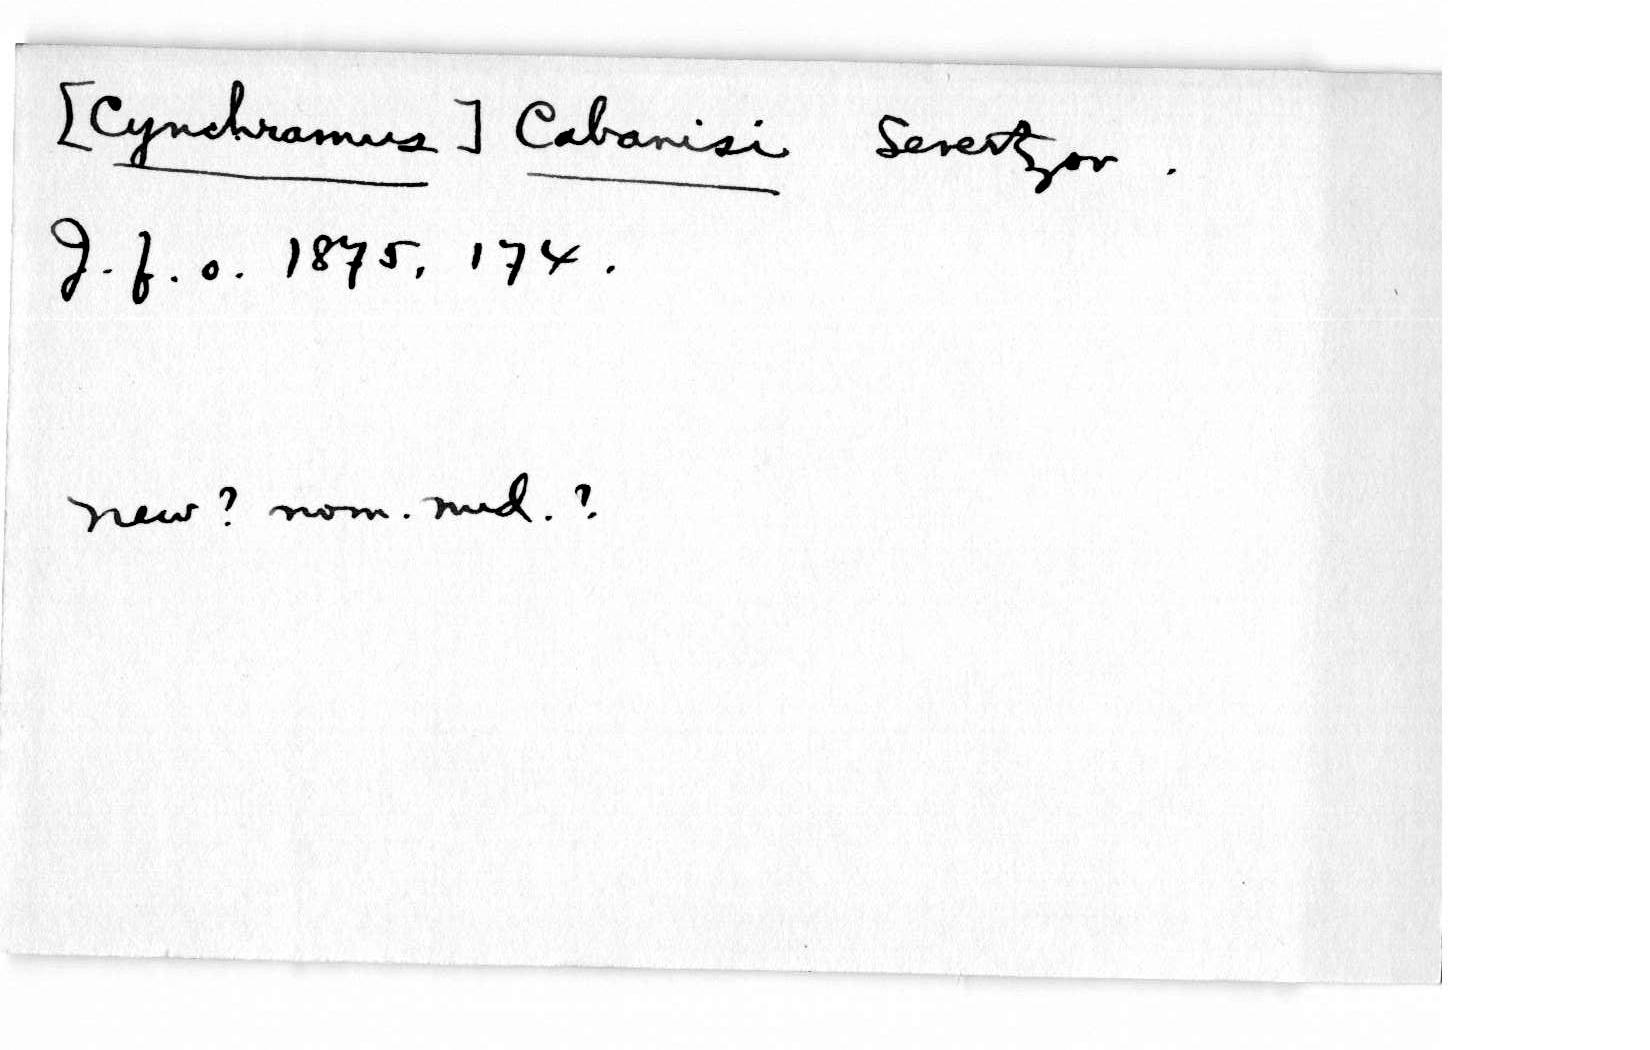 [Cynchramus] Cabanisi Severtzov.
J. f. o. 1875, 174.
new? nom. nud.?